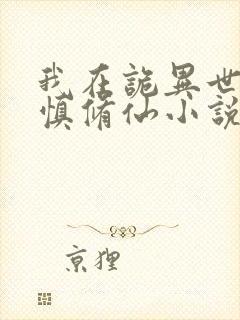 我在詭異世
慎脩仙小說
京狸